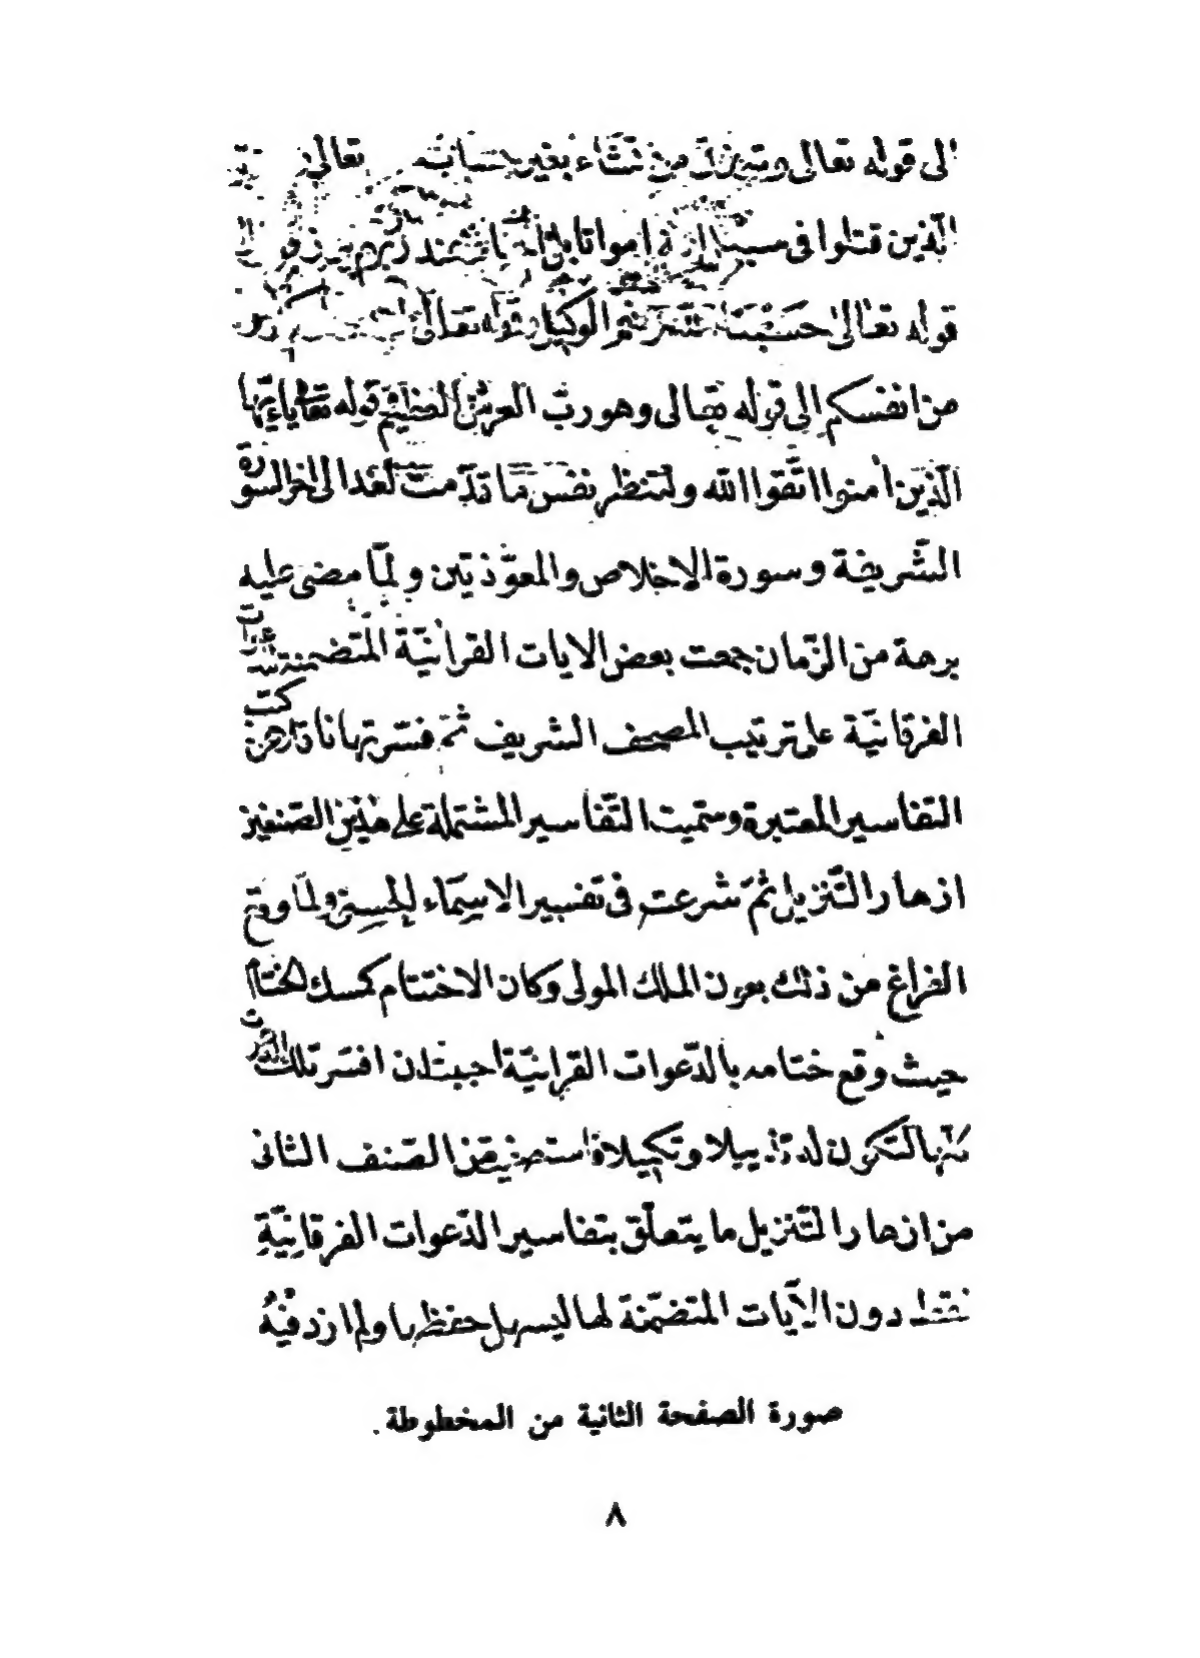 الى قوله تعالى وترزق من تشاء بغير حساب تعالى
الذين قتلوا فى سبيل الله امواتا بل احياء عند ربهم يرزقون الى
قوله تعالى حسبنا الله ونعم الوكيل وقوله تعالى
من انفسكم الى قوله تعالى وهو رب العرش العظيم وقوله تعالى يا ايها
الّذين أمنوا اتّقوا الله ولتنظر نفس مّا قدّمت لغد الى اخر السورة
الشّريفة وسورة الاخلاص والمعوّذتين ولمّا مضى عليه
برهة من الزّمان جمعت بعض الايات القرانيّة المتضمنة
الفرقانيّة على ترتيب المصحف الشريف ثمّ فسّرتها ناقلا من كتب
التفاسير المعتبرة وسمّيت التّفاسير المشتملة على هذين الصّنفين
ازهار التّنزيل ثمّ شرعت فى تفسير الاسماء الحسنى ولمّا وقع
الفراغ من ذلك بعون الملك المولى وكان الاختتام كمسك الختام
حيث وقع ختامه بالدّعوات القرانيّة احببت ان افسّر تلك
لتكون له تذييلا وتكميلا من الصّنف الثانى
من ازهار التّنزيل ما يتعلّق بتفاسير الدّعوات الفرقانيّةِ
فقط دون الآيات المتضمّنة لها ليسهل حفظها ولم ازد فيْهُ
صورة الصفحة الثانية من المخطوطة .
٨